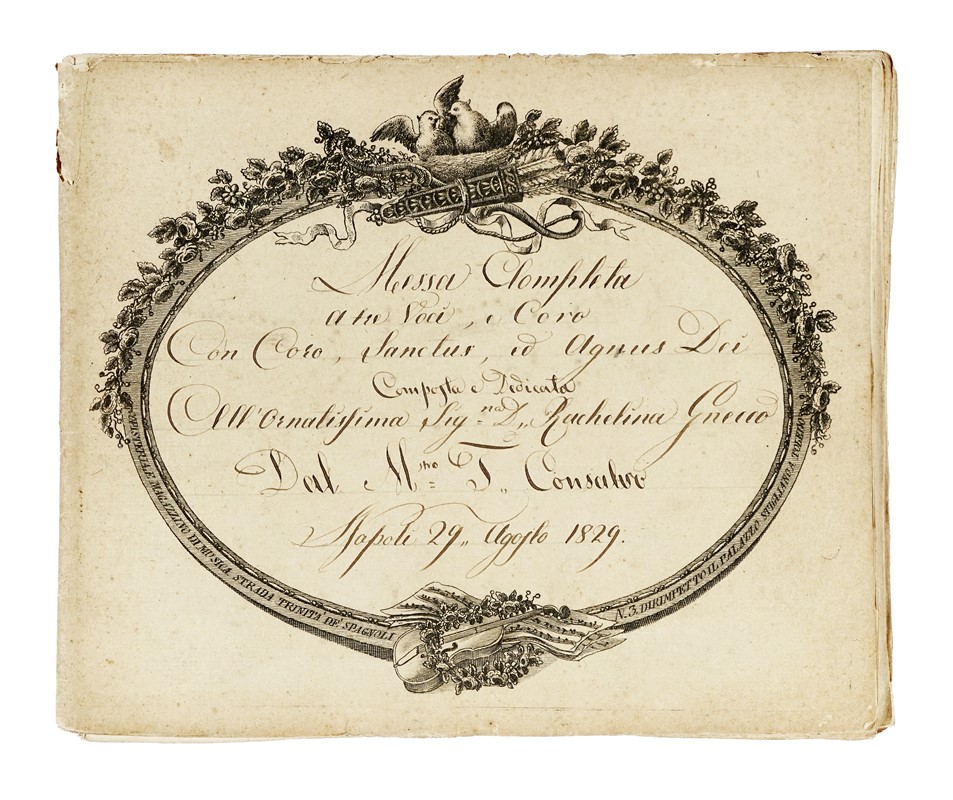 Messa Completa
a tre Voci, e Coro
Con Coro, Sanctus, ed Agnus Dei
Composta e Dedicata
All'Ornatissima Sig.na D.,, Rachelina Gnecco
Dal M.stro T,, Consalvo
Napoli 29,, Agosto 1829.
COPISTERIA, E MAGAZZINO DI MUSICA STRADA TRINITA' DE' SPAGNOLI
N. 3. DIRIMPETTO IL PALAZZO STIGLIANO A TOLEDO